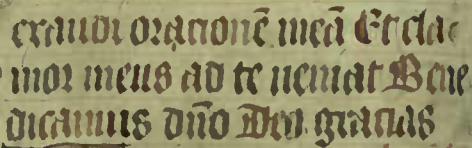 exaudi oracionē meā Et cla
mor meus ad te ueniat Bene
dicamus dn̄o Deo gracias